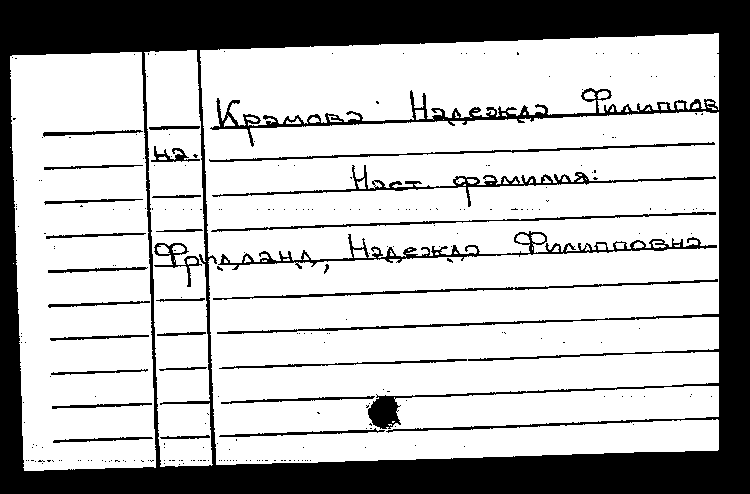 Крамова Надежда Филиппов
на.
Наст. фамилия:
Фридланд, Надежда Филипповна